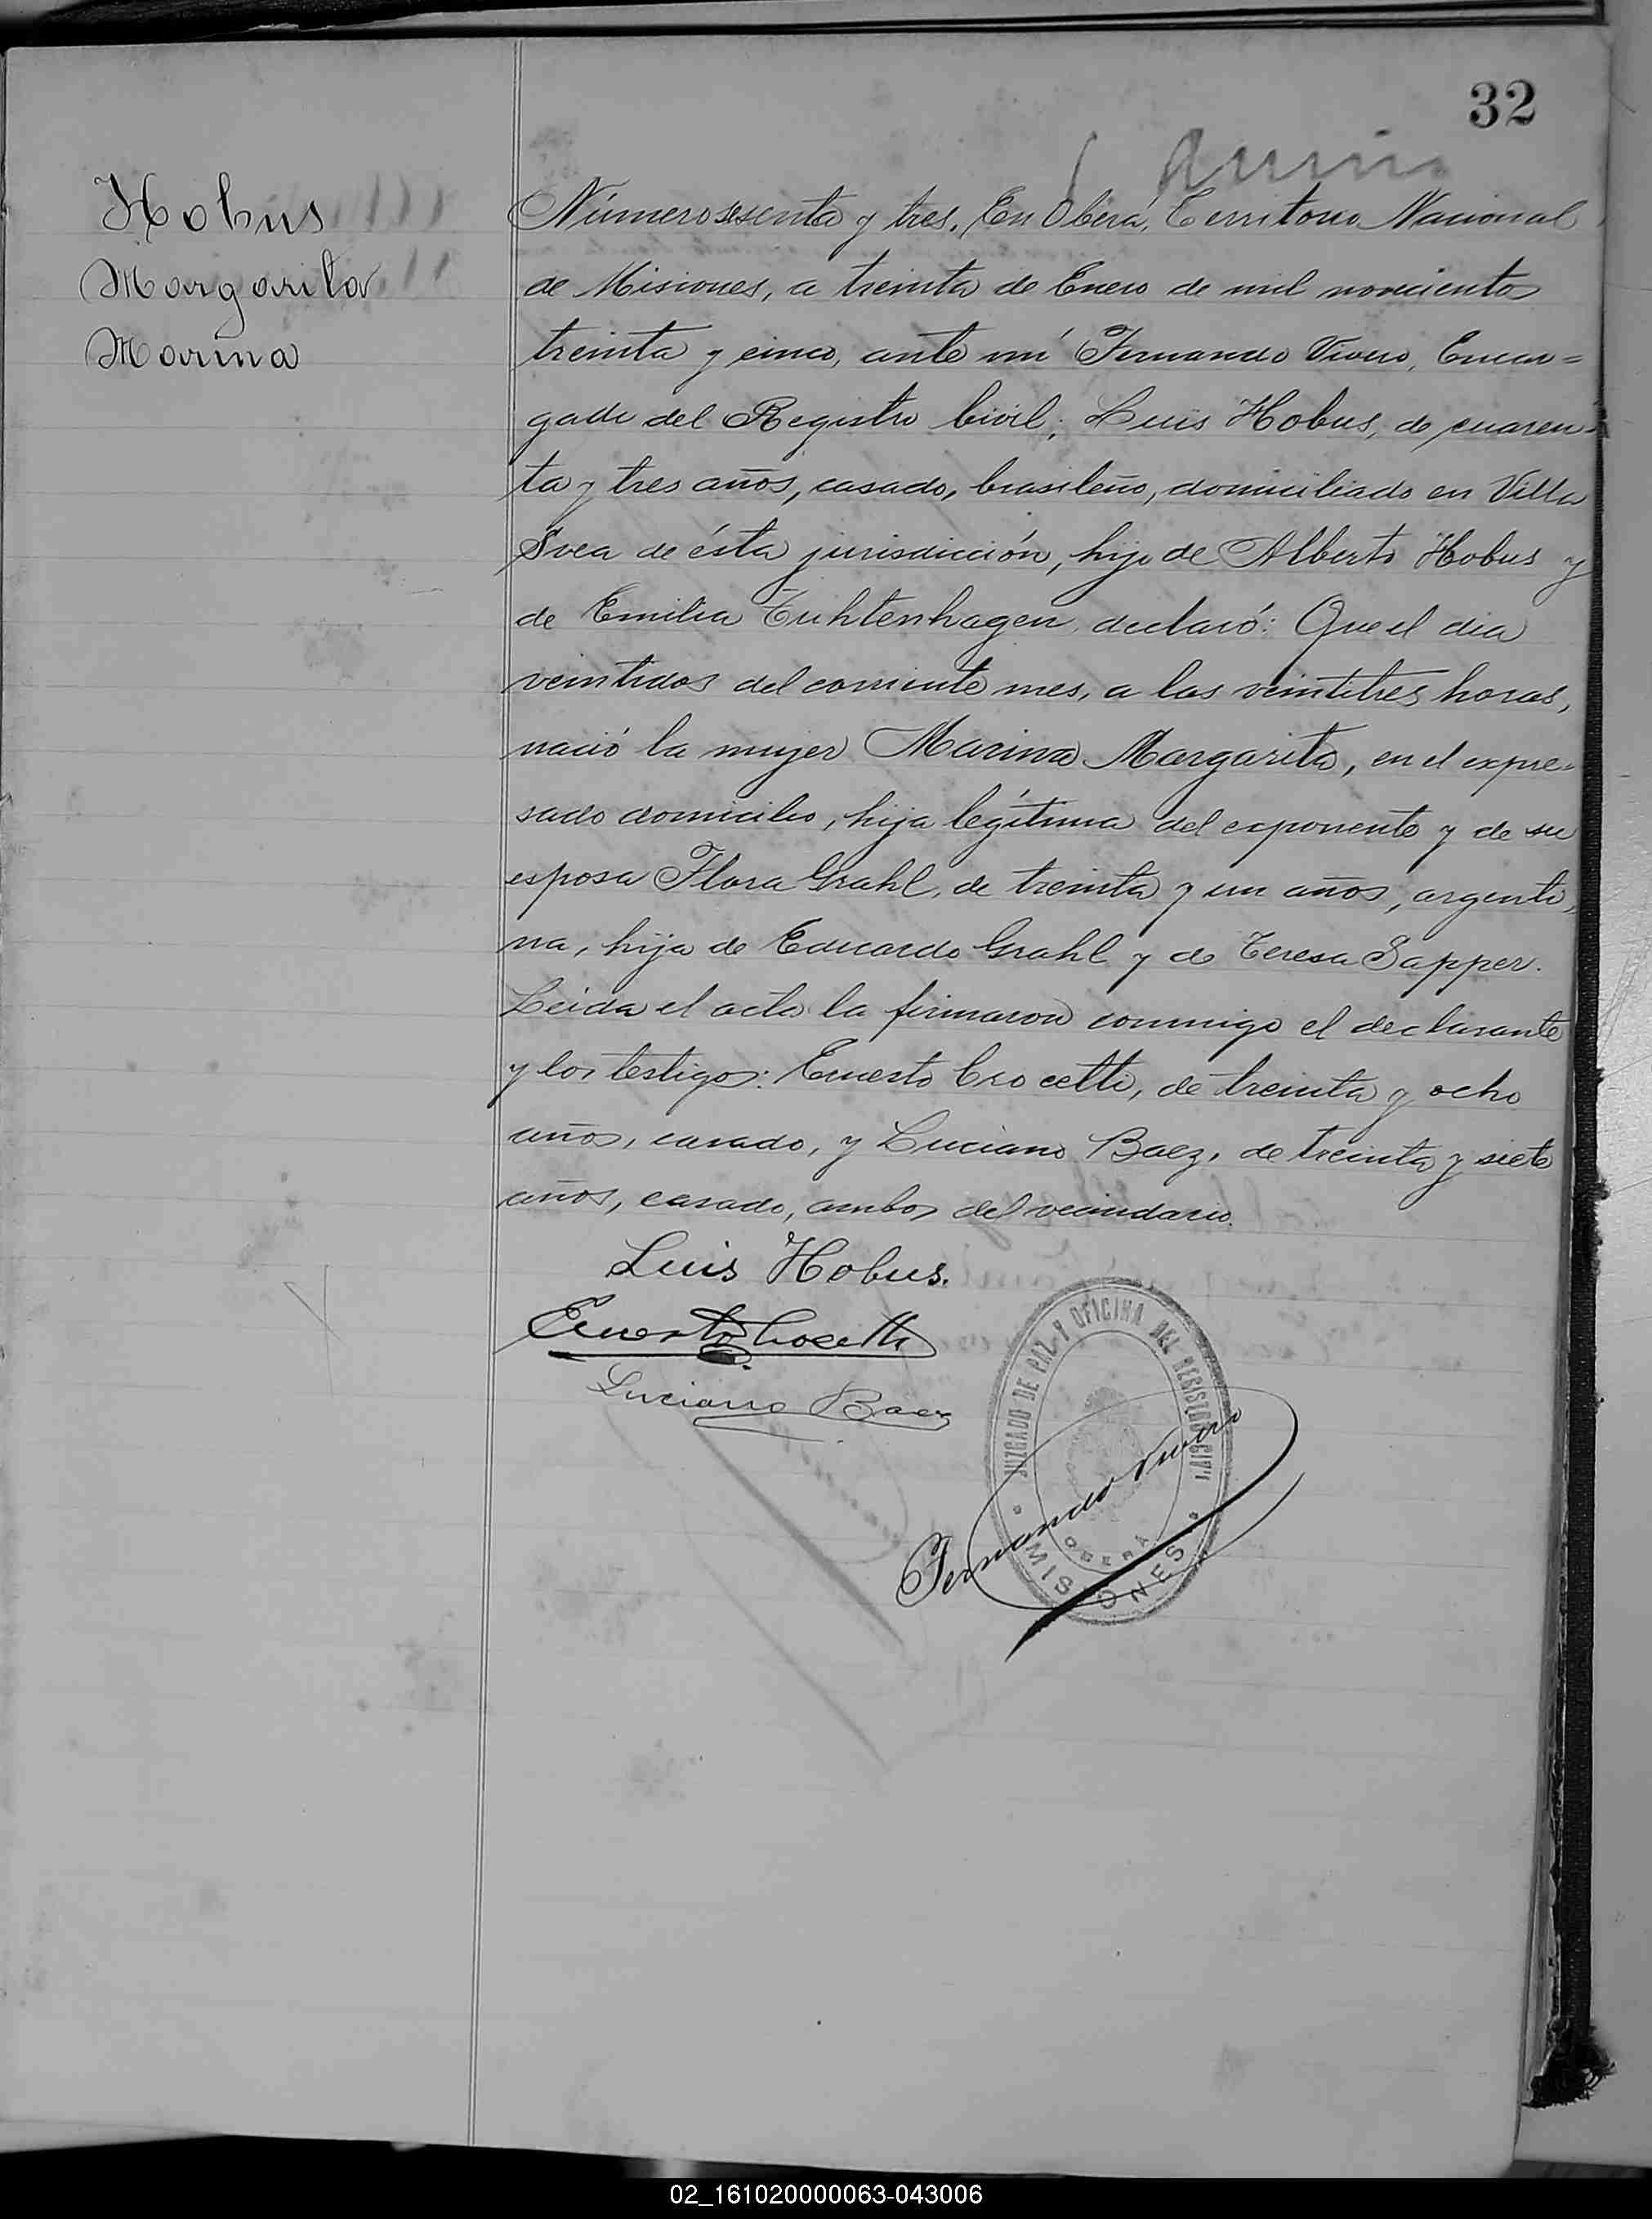 32
Hobus
Margarita
Marina
Número sesenta y tres. En Oberá, Territorio Nacional
de Misiones, a treinta de Enero de mil novecientos
treinta y cinco, ante mí Fernando Vivero, Encar=
gado del Registro Civil; Luis Hobus, de cuaren-
ta y tres años, casado, brasileño, domiciliado en Villa
Svea de ésta jurisdicción, hijo de Alberto Hobus y
de Emilia Tuhtenhagen, declaró: Que el dia
veintidos del corriente mes, a las veintitres horas,
nació la mujer Marina Margarita, en el expre-
sado domicilio, hija legítima del exponente y de su
esposa Flora Grahl, de treinta y un años, argenti-
na, hija de Eduardo Grahl y de Teresa Sapper.
Leida el acta la firmaron conmigo el declarante
y los testigos: Ernesto Crocetti, de treinta y ocho
años, casado, y Luciano Baez, de treinta y siete
años, casado, ambos del vecindario.
Luis Hobus.
Ernesto Crocetti
Luciano Baez
JUZGADO DE PAZ Y OFICINA DEL REGISTRO CIVIL
OBERÁ
MISIONES
Fernando Vivero
02_161020000063-043006